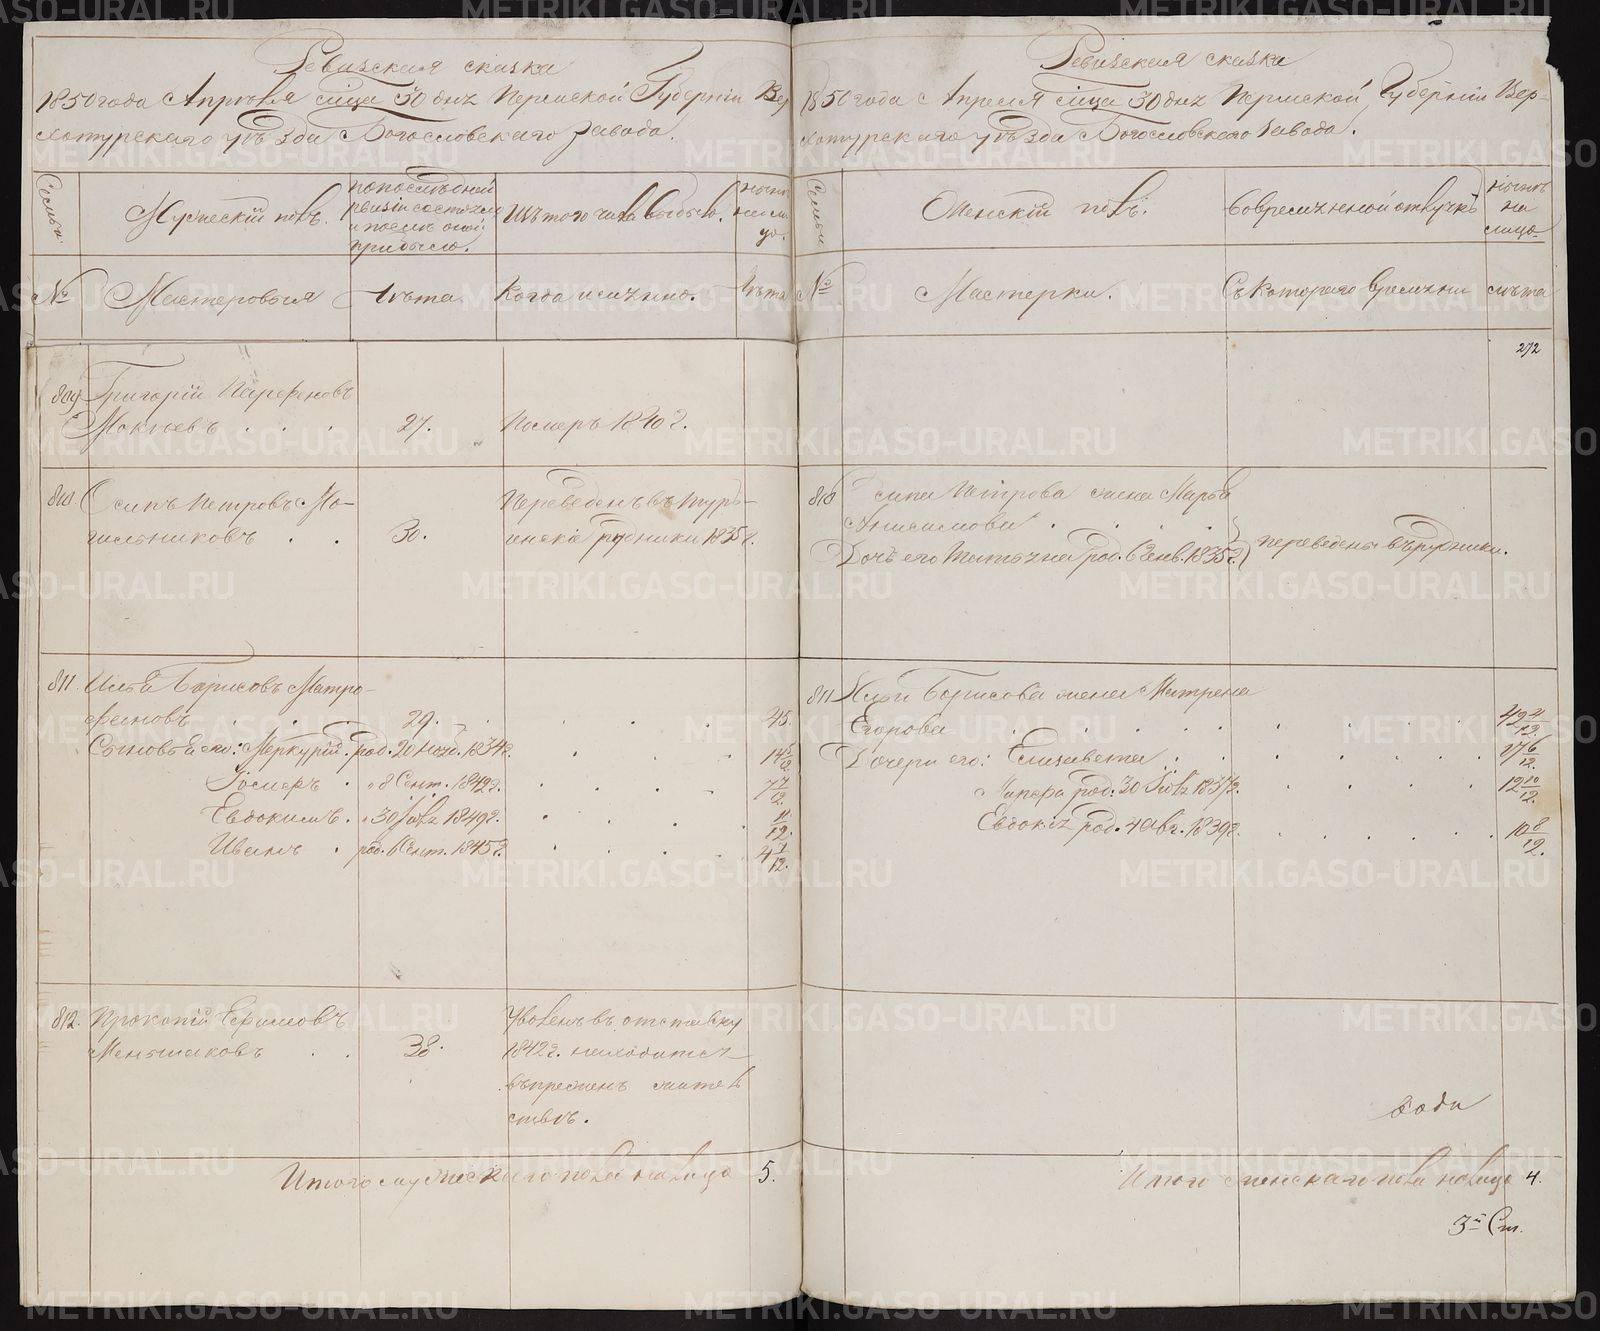 Ревизская сказка
1850 года Апреля м͠ца 30 дня Пермской Губернии Вер
хотурскаго уѣзда Богословскаго завода.
Семьи
Мужескій полъ.
по последней
ревизіи состояло
и после оной
прибыло.
Изъ того числа выбыло.
ныне
на ли
цо.
№
Мастеровыя
Лѣта
Когда именно.
Лѣта
809 Григорій Парфеновъ
Мокеевъ . . . 27. Померъ 1840 г.
810 Осипъ Петровъ Мо-
гильниковъ . . 30.
Переведенъ въ Турь-
инскіе рудники 1835 г.
811 Илья Борисовъ Митро-
фановъ . . . 29. . . . . 45.
Сыновья его: Меркурій: род. 20 Нояб. 1834 г. . . . 14 5/12
. 8 Сент. 1842 г. . . . . 7 7/12
Евдокимъ . . 30 Іюля 1849 г. . . . 9/12.
Иванъ . род. 6 Сент. 1845 г. . . . 4 7/12.
812. Прокопій Ефимовъ
Меньшаковъ . . 38.
Уволенъ въ отставку
1842 г. находится
въ прежнем жителъ
ствѣ.
Итого мужескаго пола на лицо 5.
Ревизская сказка
1850 года Апреля м͠ца 30 дня Пермской Губерніи Вер-
хотурскаго уѣзда Богословскаго завода.
Семьи
Женскій полъ.
Во временной отлучкѣ
ныне
на
лицо.
№
Мастерки.
Съ котораго времени
лѣта
272
810 Осипа Петрова жена Марья
Анисимова . . . .
Дочь его Татьяна род. 6 Янв. 1835 г. переведены въ рудники.
811 Ильи Борисова жена Матрена
Егорова . . . . . . . 42 4/12
Дочери его: Елизавета . . . . . . 17 6/12.
род. 30 Іюля 1837 г. . . . . 12 10/12.
Евдокія род. 4 Авг. 1839 г. . . . . 10 8/12.
Итого женскаго пола на лицо 4.
3й Ст.
METRIKI.GASO-URAL.RU